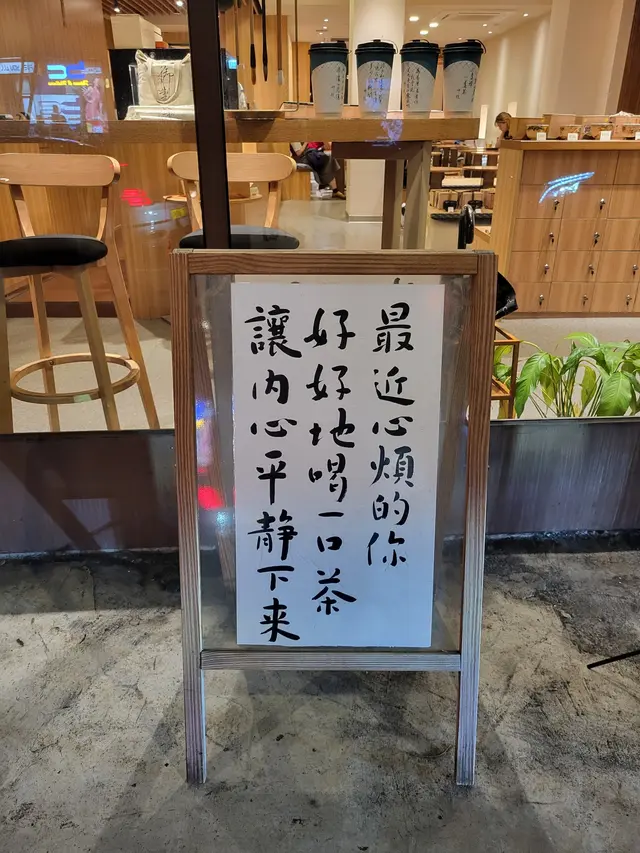 最近心煩的你
好好地喝一口茶
讓內心平静下来